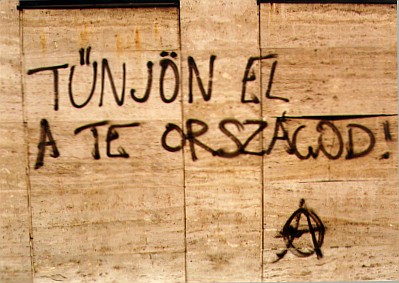 TŰNJÖN EL
A TE ORSZÁGOD!